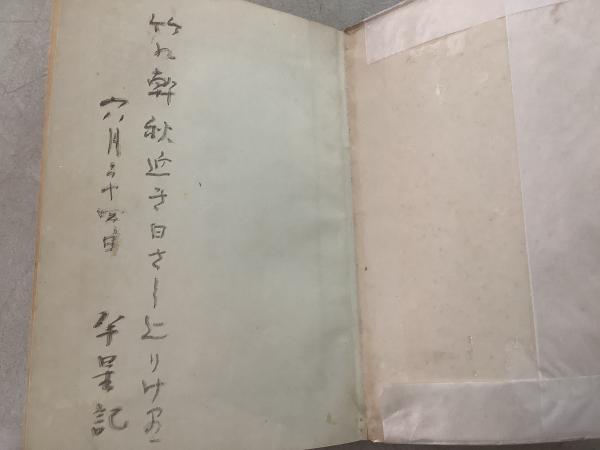 竹の幹秋近き日さし辷りけり
六月二十四日
犀星記